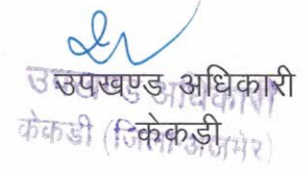 उपखण्ड अधिकारी
उपखण्ड अधिकारी
केकडी
केकडी (जिला-अजमेर)